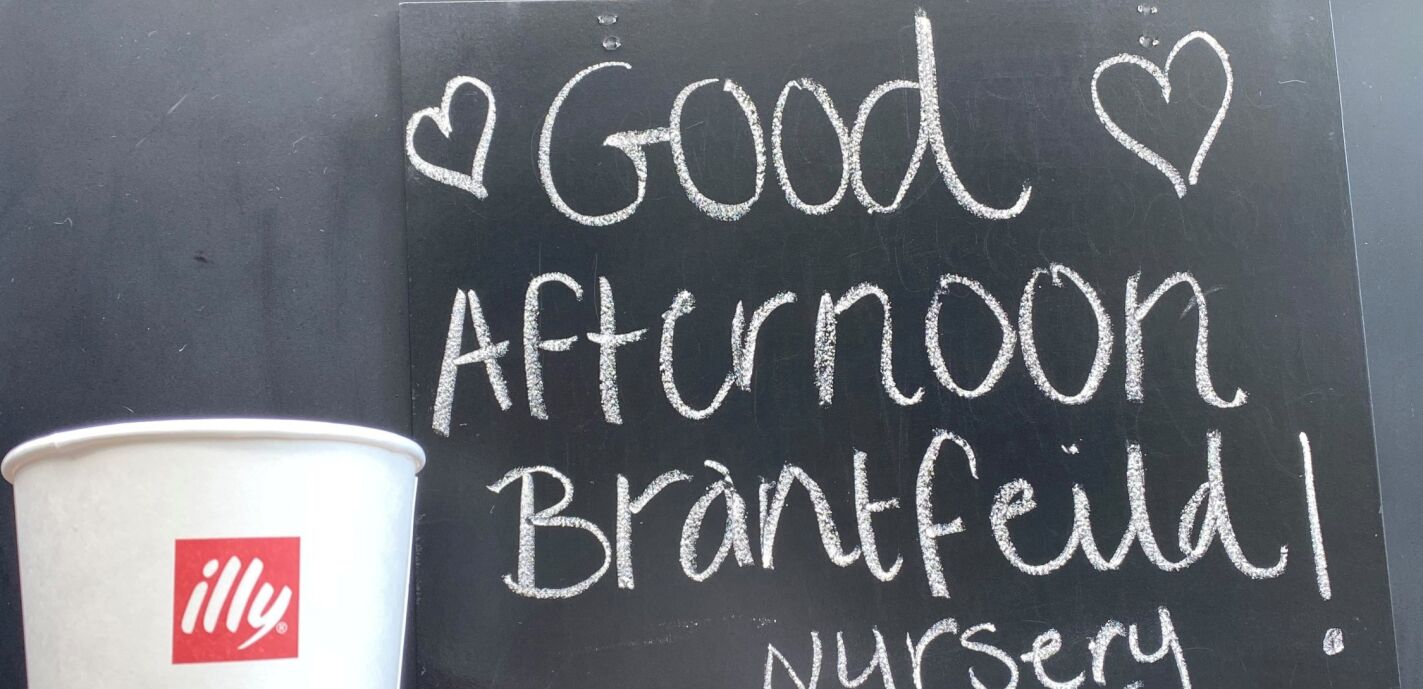 Good
Afternoon
Brantfeild!
nursery
illy®